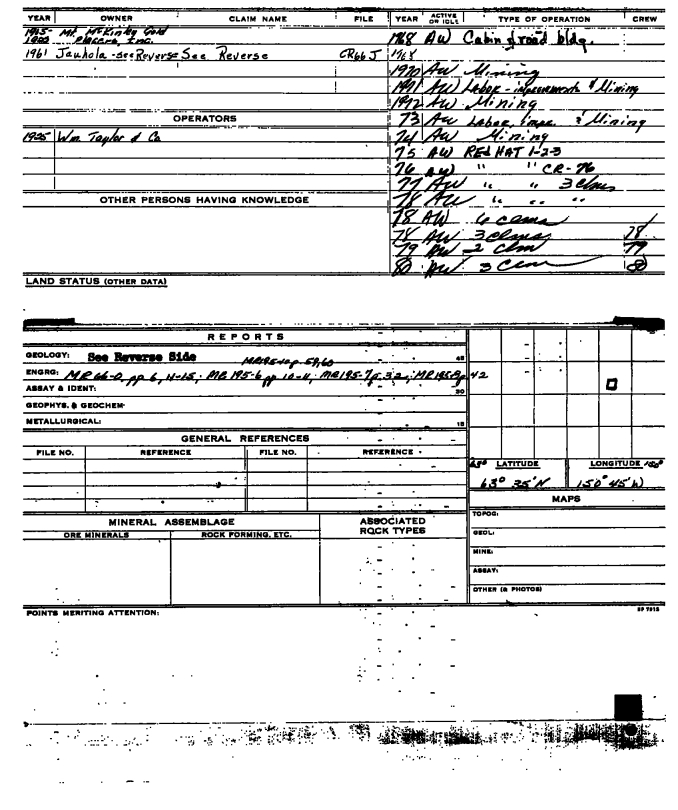 YEAR OWNER CLAIM NAME FILE
Mt. McKinley Gold
Placers, Inc.
1961 Jauhola - see Reverse See Reverse CR66J
OPERATORS
1925 Wm. Taylor & Co
OTHER PERSONS HAVING KNOWLEDGE
LAND STATUS (OTHER DATA)
YEAR ACTIVE OR IDLE TYPE OF OPERATION CREW
1968 AW Cabin & road bldg.
1970 AW Mining
1971 AW Labor - improvements & Mining
1972 AW Mining
73 AW Labor, impr. & Mining
74 AW Mining
75 AW RED HAT 1-2-3
76 AW " " CR-76
77 AW " " 3 clms
78 AW " " "
78 AW
78 AW 3 clms 78
79 AW 2 clm 79
80 AW 3 clm 80
REPORTS
GEOLOGY: See Reverse Side MR195-10 p. 59,60
ENGRG: MR 66-0, pp 6, 11-15; MR 195-6 pp 10-11; MR195-7 p. 32; p 42
ASSAY & IDENT:
GEOPHYS. & GEOCHEM-
METALLURGICAL:
GENERAL REFERENCES
FILE NO. REFERENCE FILE NO. REFERENCE
MINERAL ASSEMBLAGE ASSOCIATED ROCK TYPES
ORE MINERALS ROCK FORMING, ETC.
POINTS MERITING ATTENTION:
LATITUDE LONGITUDE
63° 35'N 150° 45'W
MAPS
TOPOG:
GEOL:
MINE:
ASSAY:
OTHER (& PHOTOS)